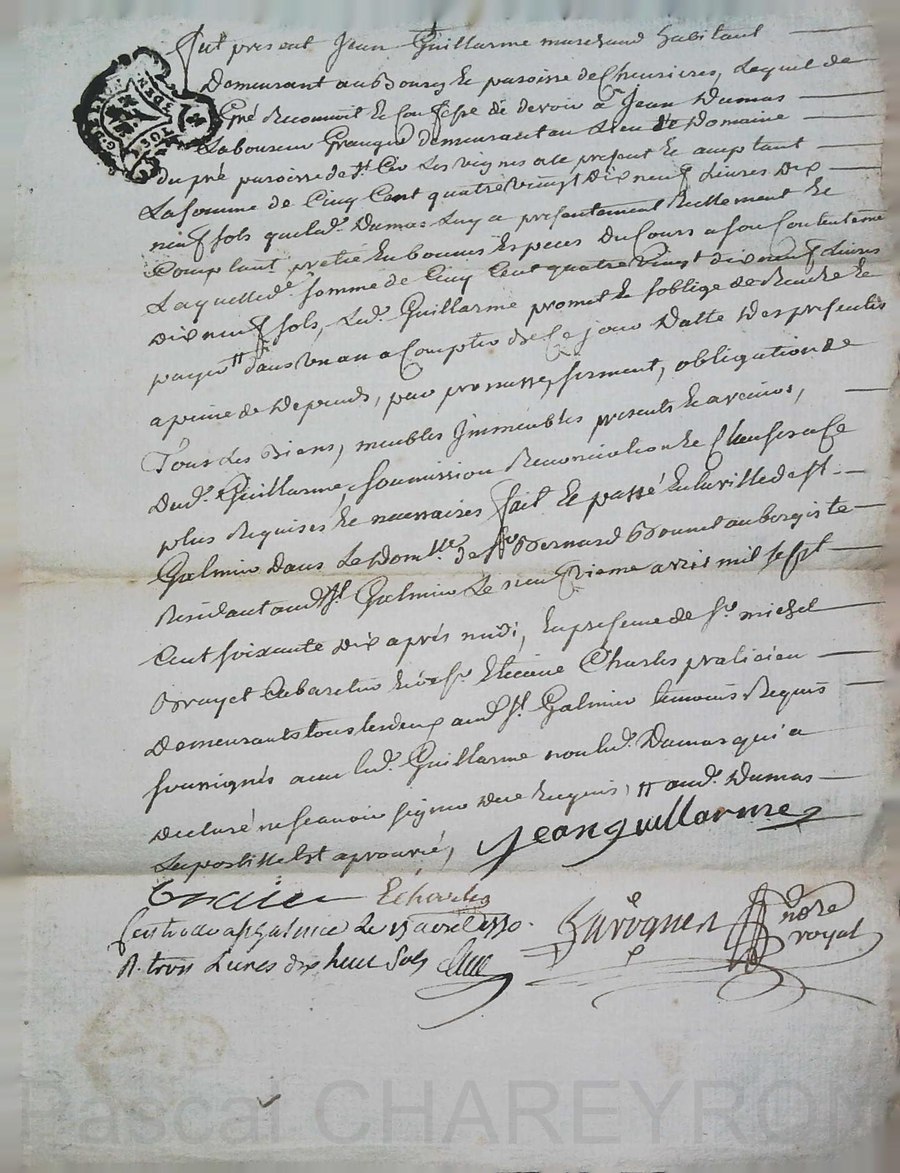 fut present Jean Guillarme marchand habitant
Demeurant au Bourg & paroisse de Chevrieres, Lequel de
Gré Reconnoit & Confesse de devoir à Jean Dumas
Laboureur Granger demeurant au Lieu de Domaine
du pré paroisse de St Cir Les vignes a le present & acceptant
La somme de Cinq Cent quatre vingt Dix neuf Livres Dix
neuf sols que led. Dumas Luy a presentement Reellement &
Comptant preté En bonnes Especes du Cours a son Contentemt
Laquelle de somme de Cinq Cent quatre vingt dix neuf Livres
Dix neuf sols, Led. Guillarme promet & soblige de Rendre &
payer tt dans un an a Compter de Ce jour Datte des presentes
a peine de Depends, par promesse, serment, obligation de
Tous Ses Biens, meubles Immeubles presents & avenirs,
Dud. Guillarme, soumission Renonciation & Clauses a Ce
plus Requises & necessaires fait & passé En la ville de St
Galmier dans Le Domlle de Sr Bernard Bonnet aubergiste
Residant aud. St Galmier Le neuf vieme avril mil sept
Cent soixante Dix après midi, En presence de Sr michel
Brayet Cabaretier & de Sr Etienne Charles praticien
Demeurants tous Les deux aud. St Galmier temoins Requis
soussignés avec led. Guillarme non led. Dumas qui a
declaré ne scavoir signer de ce Enquis, tt aud. Dumas
La postille Est aprouvée,
Jean guillarme
Echarles
Controlé a St Galmier Le 15 avril 1770.
R. trois Livres dix huit Sols
nore
royal
Pascal CHAREYRON